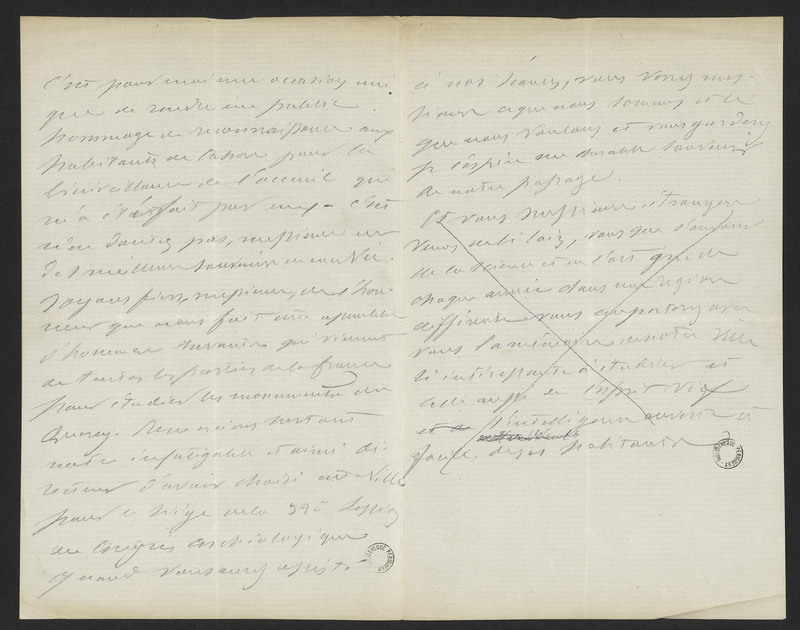 C'est pour moi une occasion uni-
que de rendre un public
hommage de reconnaissance aux
habitants de Cahors pour la
bienveillance de l'accueil qui
m'a été fait par eux. C'est
n'en doutez pas, messieurs un
des meilleurs souvenirs de ma vie.
Soyons fiers, messieurs, de l'hon-
neur que nous fait cette assemblée
d'hommes savants qui viennent
de toutes les parties de la france
pour étudier les monuments du
Quercy. Remercions surtout
notre infatigable et aimé di-
recteur d'avoir choisi cette ville
pour le siège de la 32e Session
du Congrès archéologique
Quand vous aurez assisté
à nos séances, vous verrez mes-
sieurs ce que nous sommes et ce
que nous voulons et vous garderez
je l'espère un durable souvenir
de notre passage.
Et vous messieurs étrangers
venus de si loin, vous que l'amour
de la science et de l'art
chaque année dans une région
différente vous emporterez avec
vous la mémoire de notre ville
si intéressante à étudier et
celle aussi de l'esprit vif
et de l'intelligence ouverte et
facile, de ses habitants